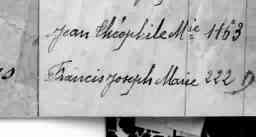 Jean Théophile Mie 1163
Francis Joseph Marie 222